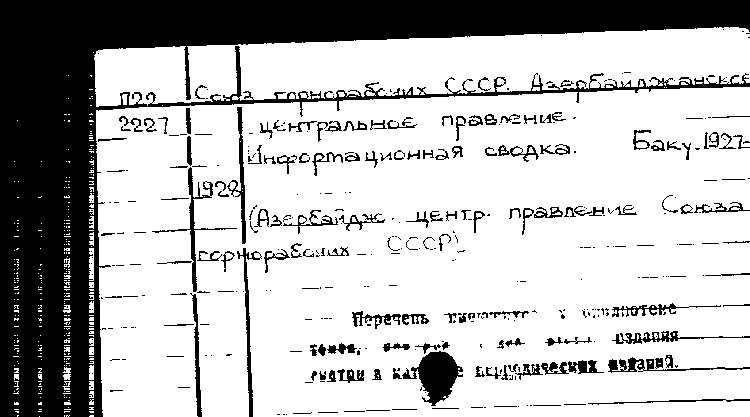 П22 Союз горнорабочих СССР. Азербайджанское
2227 центральное правление.
Информационная сводка. Баку. 1927-
1928
(Азербайдж. центр. правление Союза
горнорабочих СССР)
Перечень имеющихся в библиотеке
томов, издания
смотри в каталоге периодических изданий.